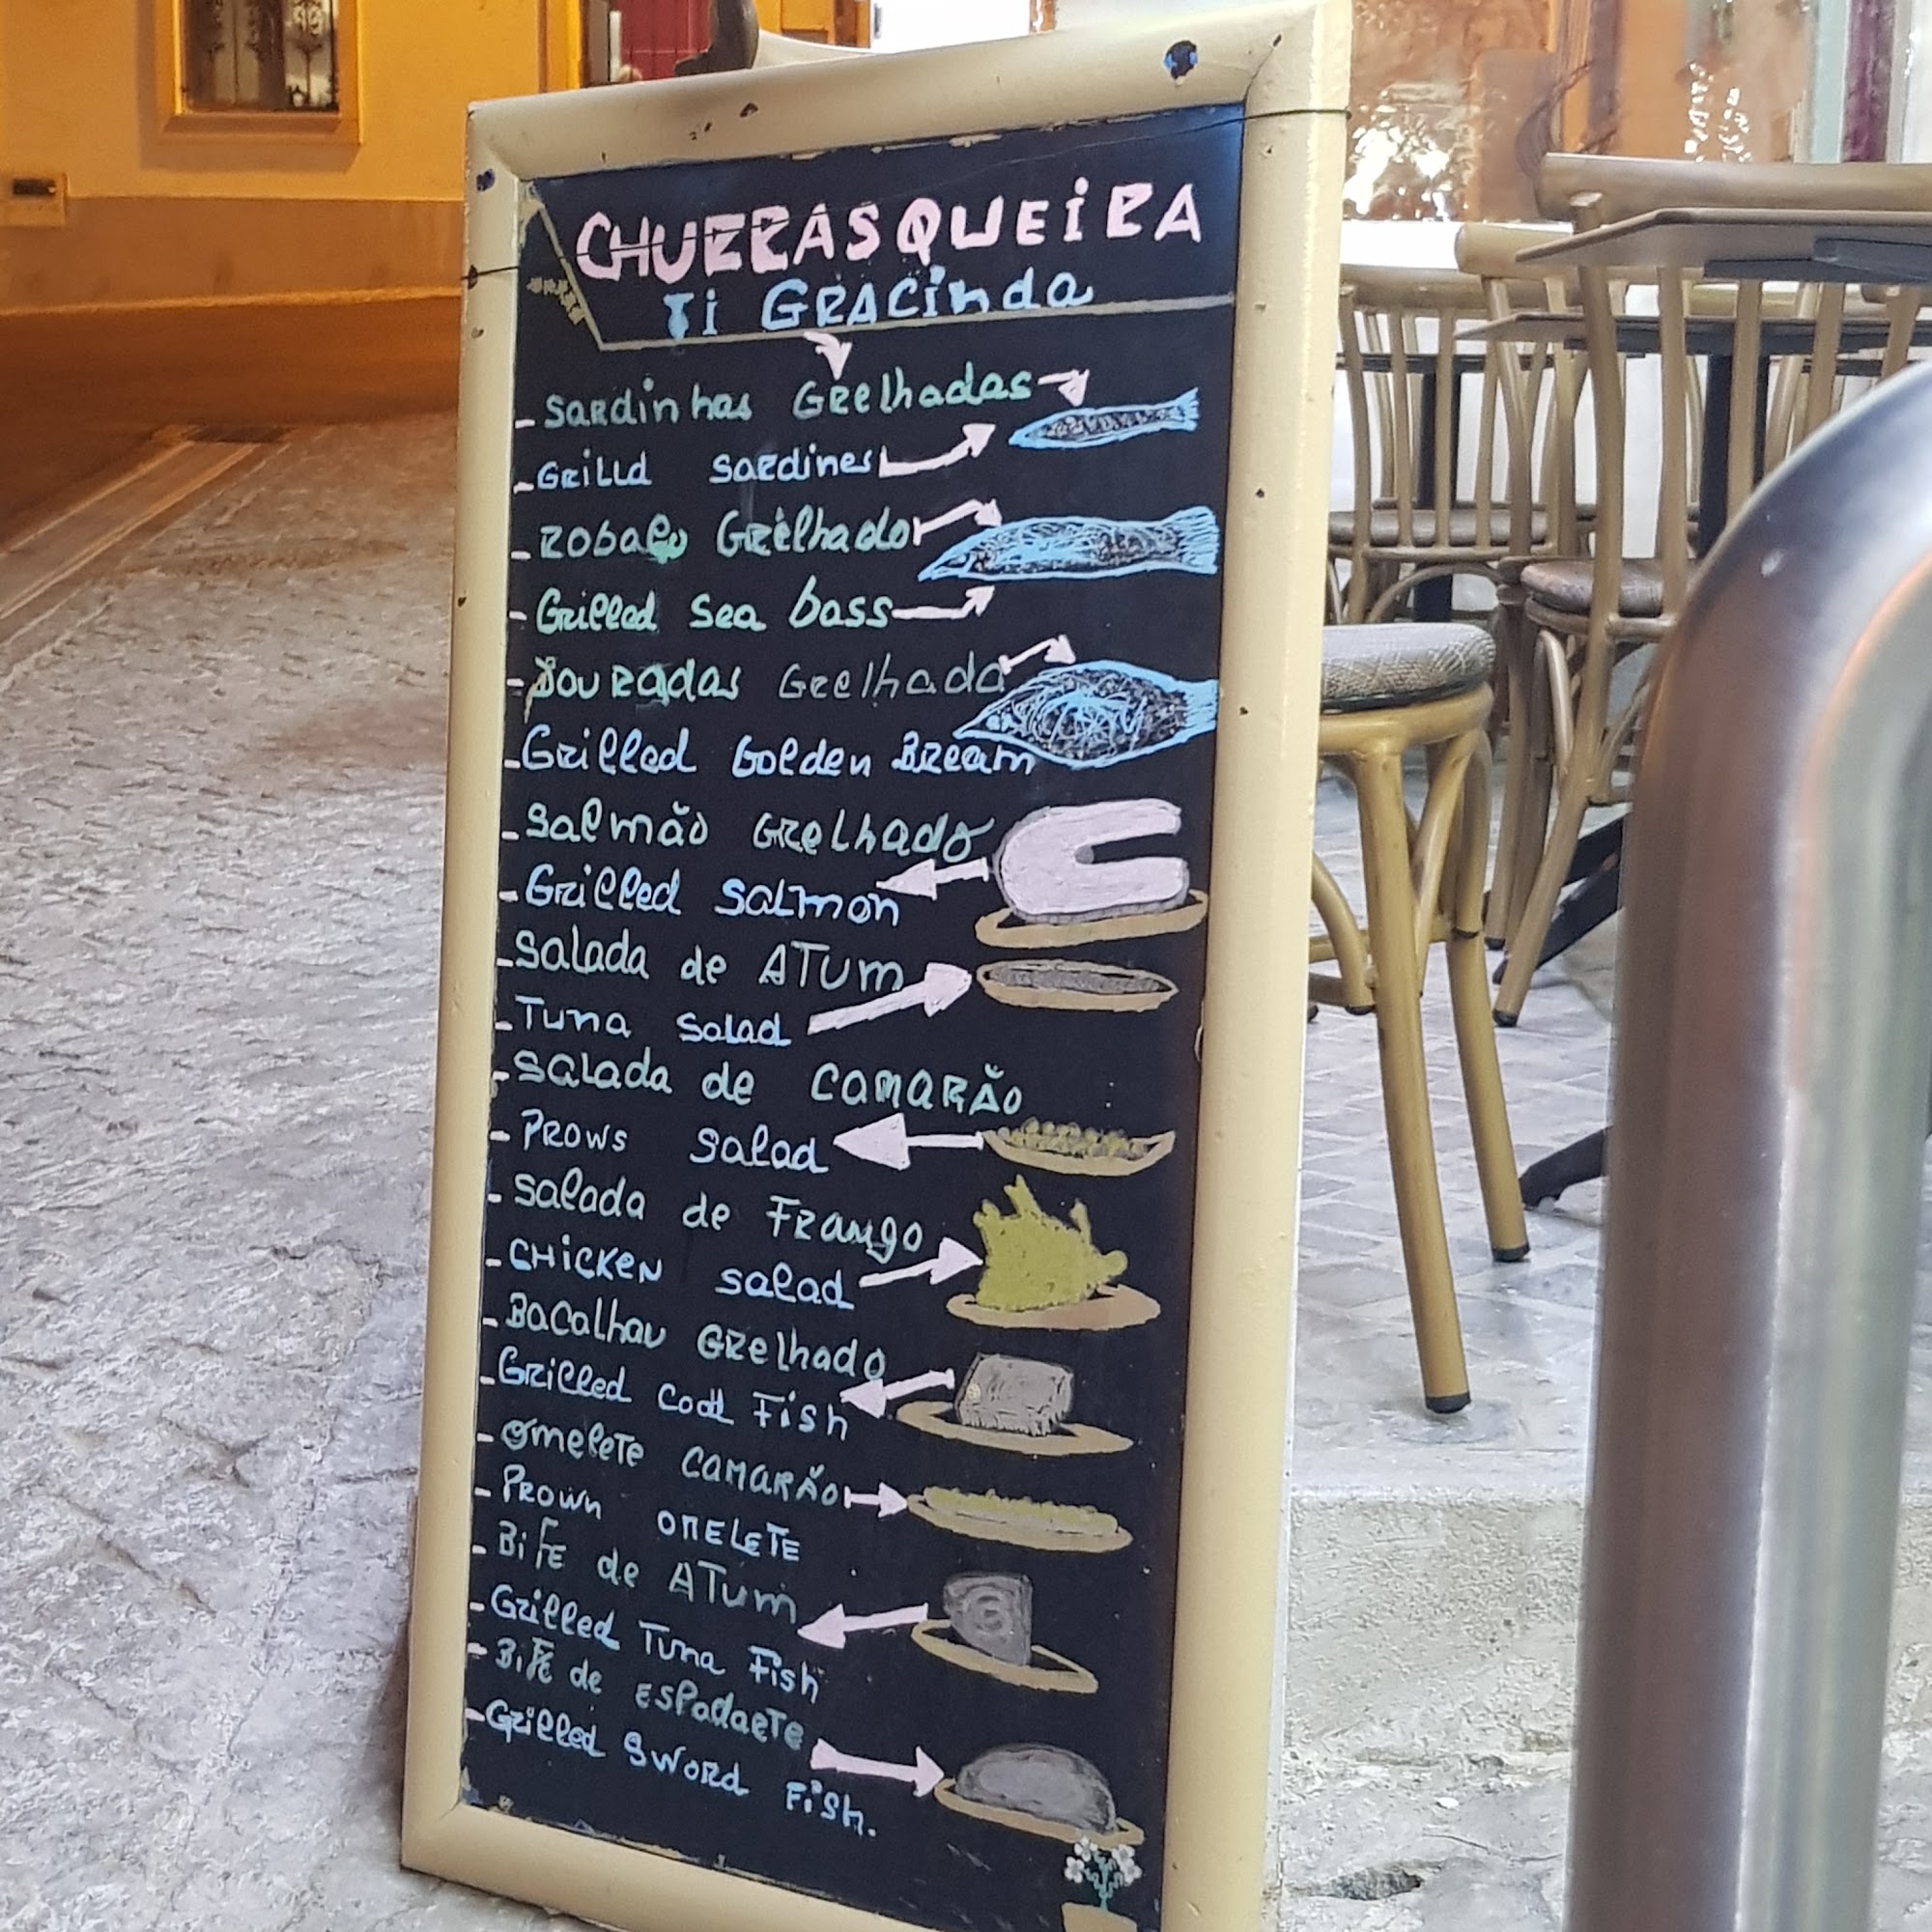 CHURRASQUEiRA
Ti GRACinda
- SARdinhas GRelhadas
- GRiLLd SaRdines
- RobaLo GRelhado
- GRilled Sea bass
- DouRadas GRelhada
- GRilled Golden BReam
- Salmão GRelhado
- GRilled Salmon
- Salada de ATUm
- Tuna Salad
- SaLada de CAMARÃo
- PRows Salad
- Salada de FRango
- CHiCKeN Salad
- BaCalhau GRelhado
- GRilled Codd Fish
- omeleTe CAMARÃo
- PRown OMELETE
- BiFE de ATUm
- GRilled Tuna Fish
- BiFE de ESPadaRTE
- GRilled SWoRd Fish.